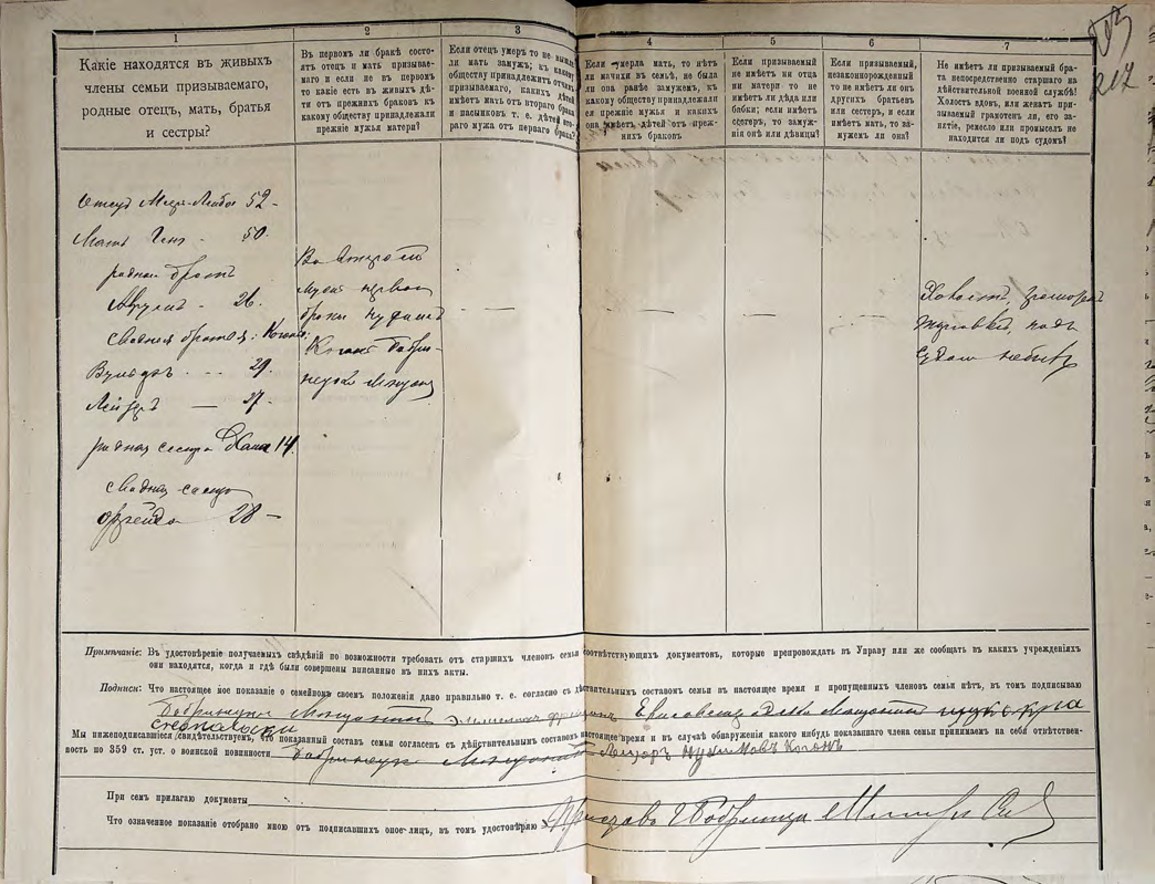 217
1
2
3
4
5
6
7
Какіе находятся въ живыхъ
члены семьи призываемаго,
родные отецъ, мать, братья
и сестры?
Въ первомъ ли бракѣ состо-
ятъ отецъ и мать призывае-
маго и если не въ первомъ
то какіе есть въ живыхъ дѣ-
ти отъ прежнихъ браковъ къ
какому обществу принадлежали
прежніе мужья матери?
Если отецъ умеръ то не вышла
ли мать замужъ; къ какому
обществу принадлежитъ отчимъ
призываемаго, какихъ дѣтей
имѣетъ мать отъ втораго брака
и пасынковъ т. е. дѣтей вто-
раго мужа отъ перваго брака?
Если умерла мать, то нѣтъ
ли мачихи въ семьѣ, не была
ли она ранѣе замужемъ, къ
какому обществу принадлежали
ея прежніе мужья и какихъ
она имѣетъ дѣтей отъ преж-
нихъ браковъ
Если призываемый
не имѣетъ ни отца
ни матери то не
имѣетъ ли дѣда или
бабки; если имѣетъ
сестеръ, то замуж-
нія онѣ или дѣвицы?
Если призываемый,
незаконнорожденный
то не имѣетъ ли онъ
другихъ братьевъ
или сестеръ, и если
имѣетъ мать, то за-
мужемъ ли она?
Не имѣетъ ли призываемый бра-
та непосредственно старшаго на
дѣйствительной военной службѣ!
Холостъ вдовъ, или женатъ при-
зываемый грамотенъ ли, его за-
нятіе, ремесло или промыселъ не
находится ли подъ судомъ?
Отецъ Меер-Лейба 52 -
Мать Геня - 50.
родной братъ
Аврумъ - 26.
сводныя братья: Коганъ:
29.
Лейзръ — 27.
родная сестра Хана 14.
сводная сестра
Фрейда 28 -
Во второмъ
мужа первого
брака Нухима
Коганъ Добри-
—
—
—
—
Холостъ, грамотенъ
подъ
судомъ небылъ
Примѣчаніе: Въ удостовѣреніе получаемыхъ свѣдѣній по возможности требовать отъ старшихъ членовъ семьи соотвѣтствующихъ документовъ, которые препровождать въ Управу или же сообщать въ какихъ учрежденіяхъ
они находятся, когда и гдѣ были совершены вписанные въ нихъ акты.
Подписи: Что настоящее мое показаніе о семейномъ своемъ положеніи дано правильно т. е. согласно съ дѣйствительнымъ составомъ семьи въ настоящее время и пропущенныхъ членовъ семьи нѣтъ, въ томъ подписываю
Мы нижеподписавшіеся, свидѣтельствуемъ, что показанный составъ семьи согласенъ съ дѣйствительнымъ составомъ настоящее время и въ случаѣ обнаруженія какого нибудь показаннаго члена семьи принимаемъ на себя отвѣтствен-
ность по 359 ст. уст. о воинской повинности Лейзоръ Нухимовъ Коганъ
При семъ прилагаю документы
Что означенное показаніе отобрано мною отъ подписавшихъ оное лицъ, въ томъ удостовѣряю